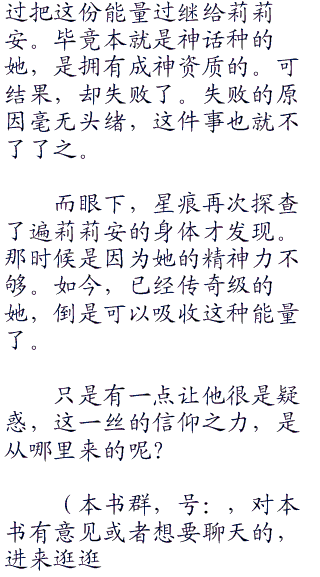 过把这份能量过继给莉莉
安。毕竟本就是神话种的
她，是拥有成神资质的。可
结果，却失败了。失败的原
因毫无头绪，这件事也就不
了了之。
而眼下，星痕再次探查
了遍莉莉安的身体才发现。
那时候是因为她的精神力不
够。如今，已经传奇级的
她，倒是可以吸收这种能量
了。
只是有一点让他很是疑
惑，这一丝的信仰之力，是
从哪里来的呢？
（本书群，号：，对本
书有意见或者想要聊天的，
进来逛逛